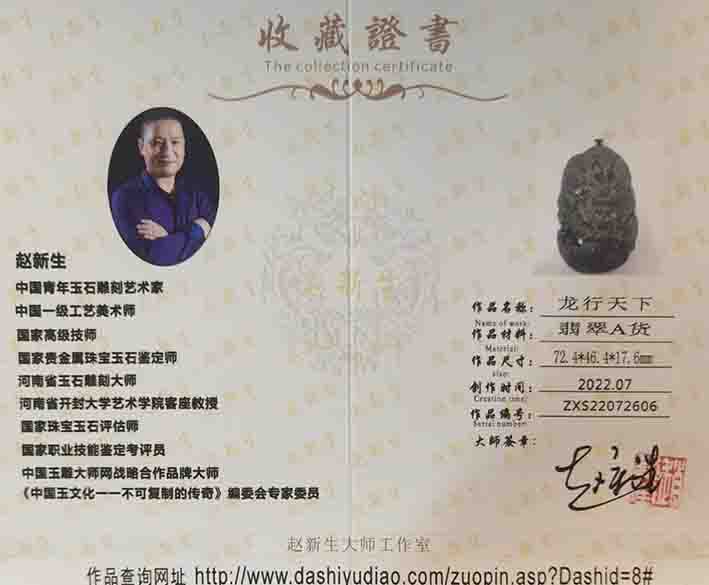 收藏證書
The collection certificate
赵新生
中国青年玉石雕刻艺术家
中国一级工艺美术师
国家高级技师
国家贵金属珠宝玉石鉴定师
河南省玉石雕刻大师
河南省开封大学艺术学院客座教授
国家珠宝玉石评估师
国家职业技能鉴定考评员
中国玉雕大师网战略合作品牌大师
《中国玉文化一一不可复制的传奇》编委会专家委员
作品名称： 龙行天下
Name of work:
作品材料： 翡翠A货
Material:
作品尺寸： 72.4*46.4*17.6mm
size:
创作时间： 2022.07
Creation time:
作品编号： ZXS22072606
Serial number:
大师签章：
赵新生大师工作室
作品查询网址 http://www.dashiyudiao.com/zuopin.asp?Dashid=8#